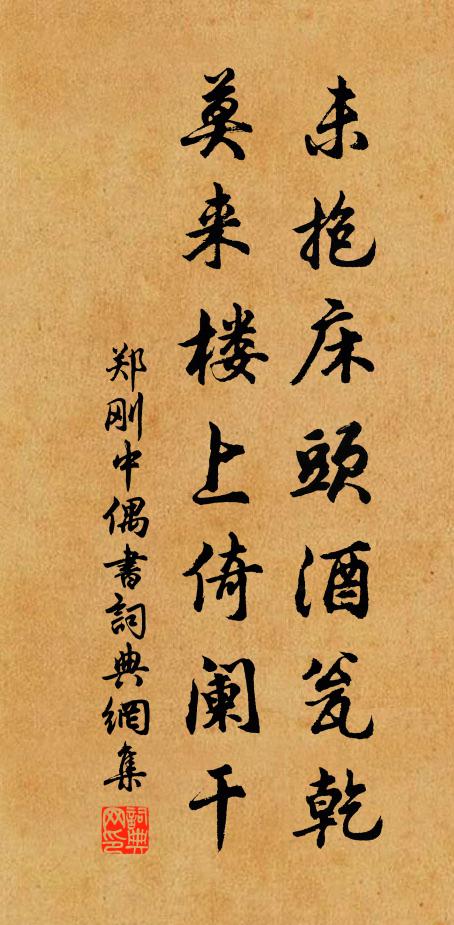 未抱床頭酒瓮乾
莫来楼上倚阑干
郑刚中偶書詞典網集
詞典网印